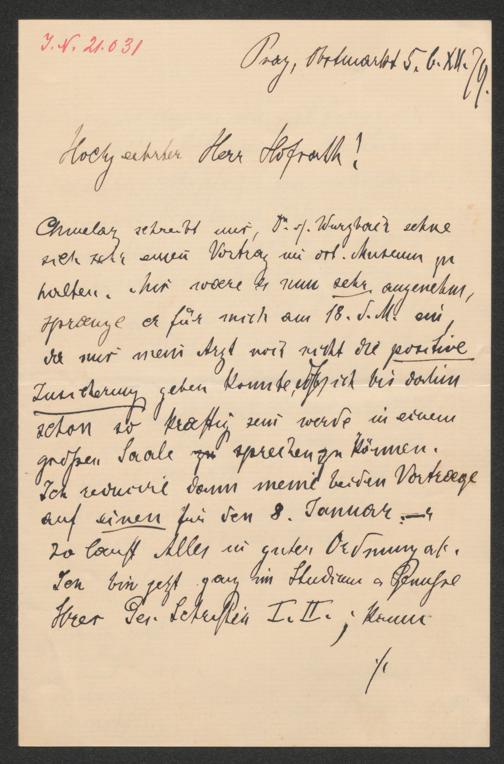 I.N. 21.031
Prag, Obstmarkt 5. 6. XII. 79.
Hochgeehrter Herr Hofrath!
Chmelarz schreibt mir, Dr. v. Wurzbach sehne
sich sehr einen Vortrag im öst. Museum zu
halten. Mir waere es nun sehr angenehm,
spraenge er für mich am 18. d. M. ein,
da mir mein Arzt noch nicht die positive
Zusicherung geben konnte, daß ich bis dahin
schon so kraeftig sein werde in einem
großen Saale sprechen zu können.
Ich reducire dann meine beiden Vortraege
auf einen für den 8. Januar
so lauft Alles in guter Ordnung ab.
Ich bin jetzt ganz im Studium u Genuße
Ihrer Ges. Schriften I. II. ; kann
./.